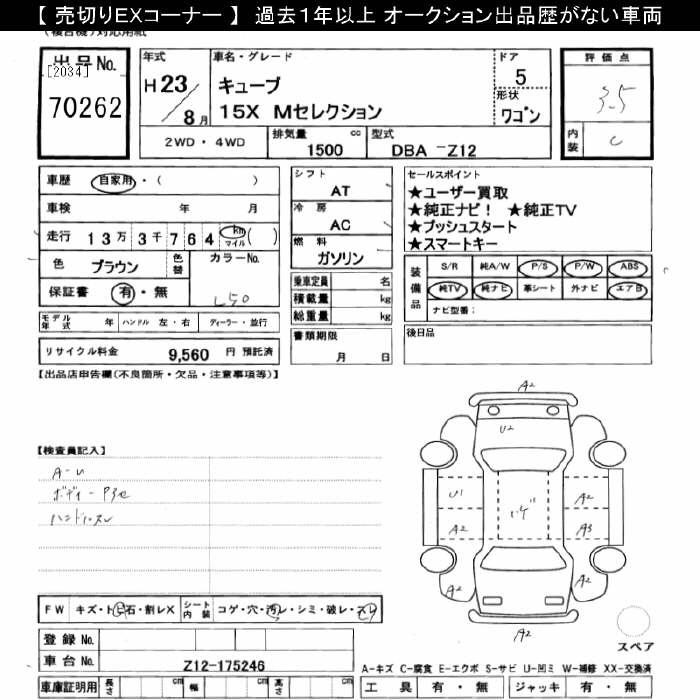 【 売切りEXコーナー 】 過去1年以上 オークション出品歴がない車両
(複合機)対応用紙
出品No.
[2034]
70262
年式
H 23 / 8 月
車名・グレード
キューブ
15X Mセレクション
ドア
5
形状
ワゴン
評価点
3.5
内装
C
2WD・4WD
排気量
cc
1500
型式
DBA －Z12
車歴
自家用・( )
車検
年 月
走行
13万3千764 km マイル ( )
色
ブラウン
色替
カラーNo.
L50
保証書
有・無
モデル年式
年
ハンドル 左・右
ディーラー・並行
リサイクル料金
9,560 円 預託済
シフト
AT
冷房
AC
燃料
ガソリン
乗車定員 名
積載量 kg
総重量 kg
書類期限
月 日
セールスポイント
★ユーザー買取
★純正ナビ! ★純正TV
★プッシュスタート
★スマートキー
装備品
S/R 純A/W P/S P/W ABS
純TV 純ナビ 革シート 外ナビ エアB
ナビ型番:
後日品
【出品店申告欄(不良箇所・欠品・注意事項等)】
【検査員記入】
A-U
ボディー
ハンドルスレ
A2
U2
U1
A2
A2
A3
A2
A2
A2
FW キズ・ト石・割レX
シート内装 コゲ・穴・汚レ・シミ・破レ・スレ
登録No.
車台No.
Z12-175246
車庫証明用
長さ cm
幅 cm
高さ cm
スペア
A-キズ C-腐食 E-エクボ S-サビ U-凹ミ W-補修 XX-交換済
工具 有・無
ジャッキ 有・無